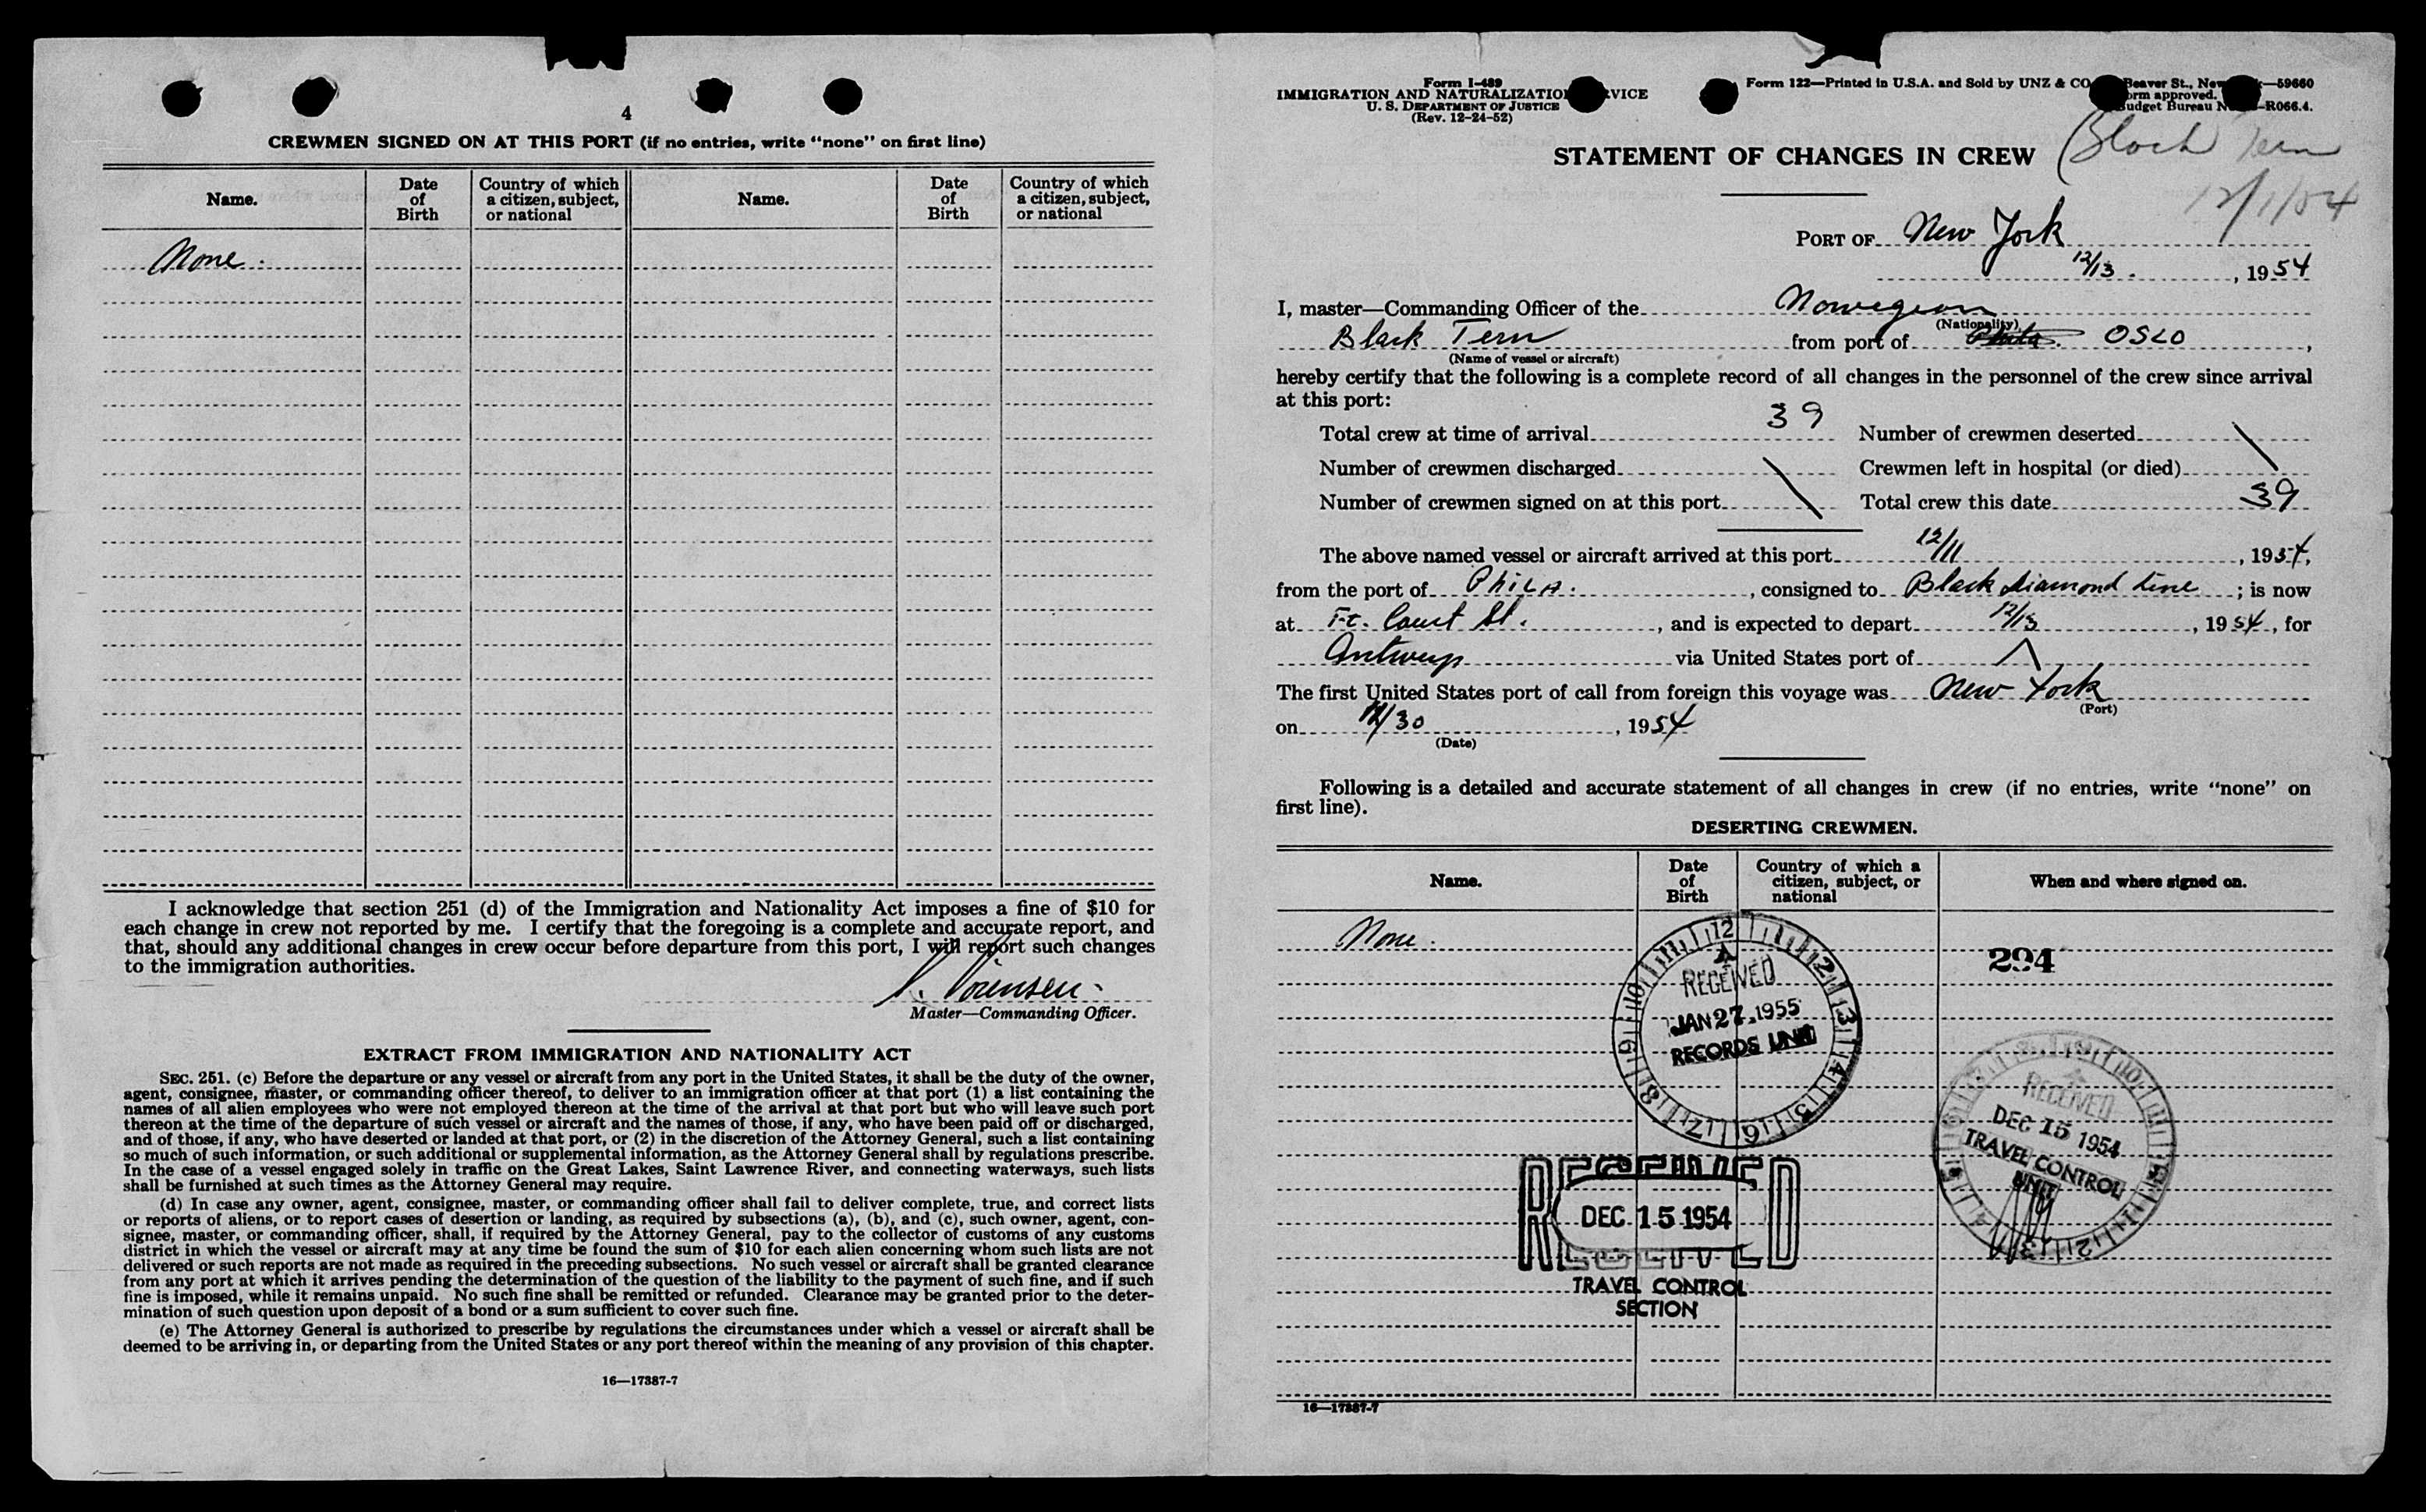 4
CREWMEN SIGNED ON AT THIS PORT (if no entries, write “none” on first line)
Name. Date of Birth Country of which a citizen, subject, or national Name. Date of Birth Country of which a citizen, subject, or national
None.
I acknowledge that section 251 (d) of the Immigration and Nationality Act imposes a fine of $10 for
each change in crew not reported by me. I certify that the foregoing is a complete and accurate report, and
that, should any additional changes in crew occur before departure from this port, I will report such changes
to the immigration authorities.
Master—Commanding Officer.
EXTRACT FROM IMMIGRATION AND NATIONALITY ACT
SEC. 251. (c) Before the departure or any vessel or aircraft from any port in the United States, it shall be the duty of the owner,
agent, consignee, master, or commanding officer thereof, to deliver to an immigration officer at that port (1) a list containing the
names of all alien employees who were not employed thereon at the time of the arrival at that port but who will leave such port
thereon at the time of the departure of such vessel or aircraft and the names of those, if any, who have been paid off or discharged,
and of those, if any, who have deserted or landed at that port, or (2) in the discretion of the Attorney General, such a list containing
so much of such information, or such additional or supplemental information, as the Attorney General shall by regulations prescribe.
In the case of a vessel engaged solely in traffic on the Great Lakes, Saint Lawrence River, and connecting waterways, such lists
shall be furnished at such times as the Attorney General may require.
(d) In case any owner, agent, consignee, master, or commanding officer shall fail to deliver complete, true, and correct lists
or reports of aliens, or to report cases of desertion or landing, as required by subsections (a), (b), and (c), such owner, agent, con-
signee, master, or commanding officer, shall, if required by the Attorney General, pay to the collector of customs of any customs
district in which the vessel or aircraft may at any time be found the sum of $10 for each alien concerning whom such lists are not
delivered or such reports are not made as required in the preceding subsections. No such vessel or aircraft shall be granted clearance
from any port at which it arrives pending the determination of the question of the liability to the payment of such fine, and if such
fine is imposed, while it remains unpaid. No such fine shall be remitted or refunded. Clearance may be granted prior to the deter-
mination of such question upon deposit of a bond or a sum sufficient to cover such fine.
(e) The Attorney General is authorized to prescribe by regulations the circumstances under which a vessel or aircraft shall be
deemed to be arriving in, or departing from the United States or any port thereof within the meaning of any provision of this chapter.
16—17387-7
Form I-489
IMMIGRATION AND NATURALIZATION
U. S. DEPARTMENT OF JUSTICE
(Rev. 12-24-52)
Form 122—Printed in U.S.A. and Sold by UNZ & CO Beaver St., New —59660
orm approved.
udget Bureau N —R066.4.
Black Tern
12/1/54
STATEMENT OF CHANGES IN CREW
PORT OF New York
12/13. , 1954
I, master—Commanding Officer of the Norwegian
(Nationality)
Black Tern from port of Phila. OSLO ,
(Name of vessel or aircraft)
hereby certify that the following is a complete record of all changes in the personnel of the crew since arrival
at this port:
Total crew at time of arrival 39 Number of crewmen deserted
Number of crewmen discharged Crewmen left in hospital (or died)
Number of crewmen signed on at this port Total crew this date 39
The above named vessel or aircraft arrived at this port 12/11 , 1954,
from the port of Phila. , consigned to Black diamond Line ; is now
at Ft. Court St. , and is expected to depart 12/13 , 1954, for
Antwerp via United States port of
The first United States port of call from foreign this voyage was New York
(Port)
on 11/30 , 1954
(Date)
Following is a detailed and accurate statement of all changes in crew (if no entries, write “none” on
first line).
DESERTING CREWMEN.
Name. Date of Birth Country of which a citizen, subject, or national When and where signed on.
None.
294
RECEIVED
JAN 27 1955
RECORDS UNIT
RECEIVED
DEC 15 1954
TRAVEL CONTROL
UNIT
RECEIVED
DEC 15 1954
TRAVEL CONTROL
SECTION
16—17387-7